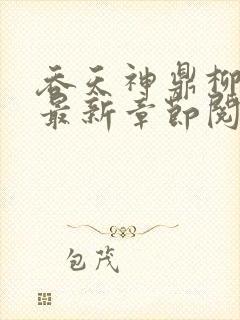 吞天神鼎柳
最新章节阅
包茂